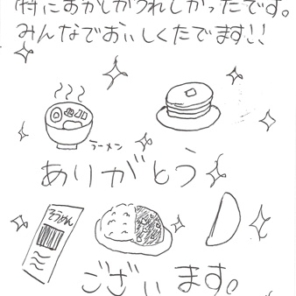 特におかしがうれしかったです。
みんなでおいしくたてます!!
ラーメン
ありがとう
そうめん
ございます。